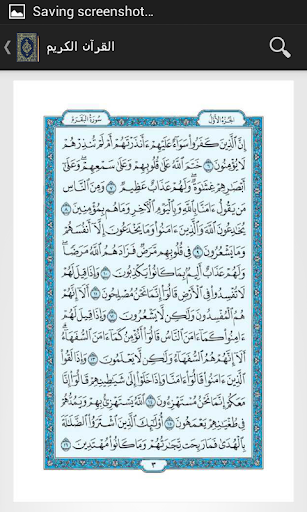 Saving screenshot...
القرآن الكريم
سورة البقرة
الجزء الأول
إِنَّ ٱلَّذِينَ كَفَرُوا۟ سَوَآءٌ عَلَيْهِمْ ءَأَنذَرْتَهُمْ أَمْ لَمْ تُنذِرْهُمْ
لَا يُؤْمِنُونَ ٦ خَتَمَ ٱللَّهُ عَلَىٰ قُلُوبِهِمْ وَعَلَىٰ سَمْعِهِمْ ۖ وَعَلَىٰٓ
أَبْصَٰرِهِمْ غِشَٰوَةٌ ۖ وَلَهُمْ عَذَابٌ عَظِيمٌ ٧ وَمِنَ ٱلنَّاسِ
مَن يَقُولُ ءَامَنَّا بِٱللَّهِ وَبِٱلْيَوْمِ ٱلْءَاخِرِ وَمَا هُم بِمُؤْمِنِينَ
٨ يُخَٰدِعُونَ ٱللَّهَ وَٱلَّذِينَ ءَامَنُوا۟ وَمَا يَخْدَعُونَ إِلَّآ أَنفُسَهُمْ
وَمَا يَشْعُرُونَ ٩ فِى قُلُوبِهِم مَّرَضٌ فَزَادَهُمُ ٱللَّهُ مَرَضًا ۖ
وَلَهُمْ عَذَابٌ أَلِيمٌۢ بِمَا كَانُوا۟ يَكْذِبُونَ ١٠ وَإِذَا قِيلَ لَهُمْ
لَا تُفْسِدُوا۟ فِى ٱلْأَرْضِ قَالُوٓا۟ إِنَّمَا نَحْنُ مُصْلِحُونَ ١١ أَلَآ إِنَّهُمْ
هُمُ ٱلْمُفْسِدُونَ وَلَٰكِن لَّا يَشْعُرُونَ ١٢ وَإِذَا قِيلَ لَهُمْ
ءَامِنُوا۟ كَمَآ ءَامَنَ ٱلنَّاسُ قَالُوٓا۟ أَنُؤْمِنُ كَمَآ ءَامَنَ ٱلسُّفَهَآءُ ۗ
أَلَآ إِنَّهُمْ هُمُ ٱلسُّفَهَآءُ وَلَٰكِن لَّا يَعْلَمُونَ ١٣ وَإِذَا لَقُوا۟
ٱلَّذِينَ ءَامَنُوا۟ قَالُوٓا۟ ءَامَنَّا وَإِذَا خَلَوْا۟ إِلَىٰ شَيَٰطِينِهِمْ قَالُوٓا۟ إِنَّا
مَعَكُمْ إِنَّمَا نَحْنُ مُسْتَهْزِءُونَ ١٤ ٱللَّهُ يَسْتَهْزِئُ بِهِمْ وَيَمُدُّهُمْ
فِى طُغْيَٰنِهِمْ يَعْمَهُونَ ١٥ أُو۟لَٰٓئِكَ ٱلَّذِينَ ٱشْتَرَوُا۟ ٱلضَّلَٰلَةَ
بِٱلْهُدَىٰ فَمَا رَبِحَت تِّجَٰرَتُهُمْ وَمَا كَانُوا۟ مُهْتَدِينَ ١٦
٣